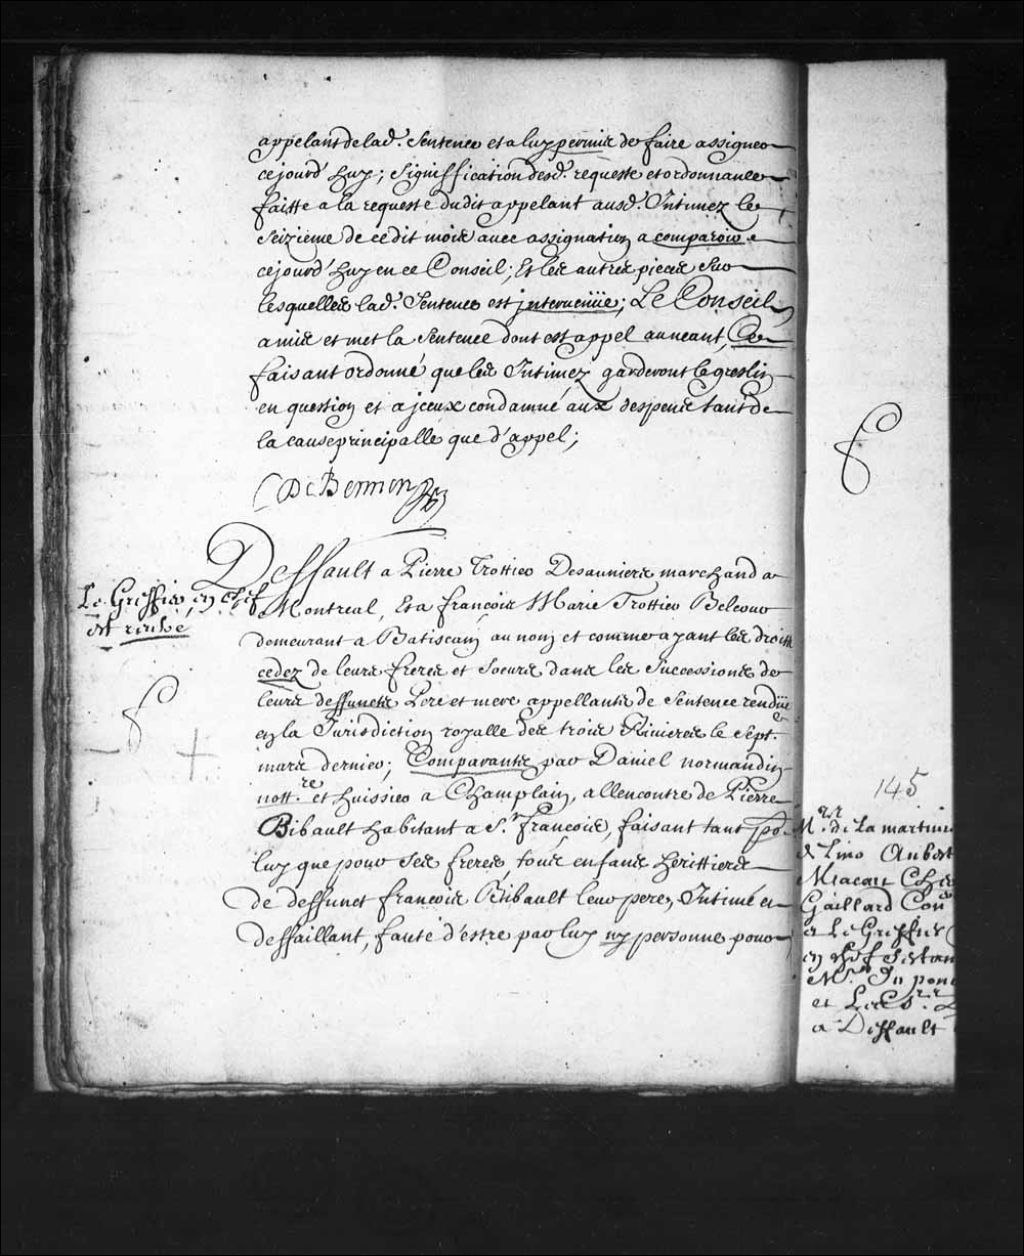 appelant de lad. Sentence et a luy permis de faire assigner
cejourd'huy; Signiffication desd. requeste et ordonnance
faitte a la requeste dudit appelant ausd. Intimez le
seizieme de cedit mois avec assignation a comparoir
cejourd'huy en ce Conseil; Et les autres pieces sur
lesquelles lad. Sentence est jntervenüe; Le Conseil
a mis et met la Sentence dont est appel au neant, Ce
faisant ordonné que les Intimez garderont le
en question et a jceux condamné aux despens tant de
la cause principalle que d'appel;
DeBermen
Deffault a Pierre Trottier Desauniers marchand a
Montreal, Et a françois Marie Trottier Belcour
demeurant a Batiscan au nom et comme ayant les droits
cedez de leurs freres et soeurs dans les Successions de
leurs deffuncts Pere et mere appellants de Sentence rendüe
en la Jurisdiction royalle des trois Rivieres le Sept.e
mars dernier; Comparants par Daniel normandin
nott.re et huissier a Champlain, allencontre de Pierre
Bibault habitant a S.t François, faisant tant po.r
luy que pour ses freres, tous enfans herittiers
de deffunct francois Bibault leur pere, Intimé et
deffaillant, faute d'estre par luy ny personne pour
Le Greffier en chef
est
145
M.rs de la martini
de Lino Aubert
Macart Ches
Gaillard Con
et le Greffier
en chef
M.
et Les S.rs
a Deffault